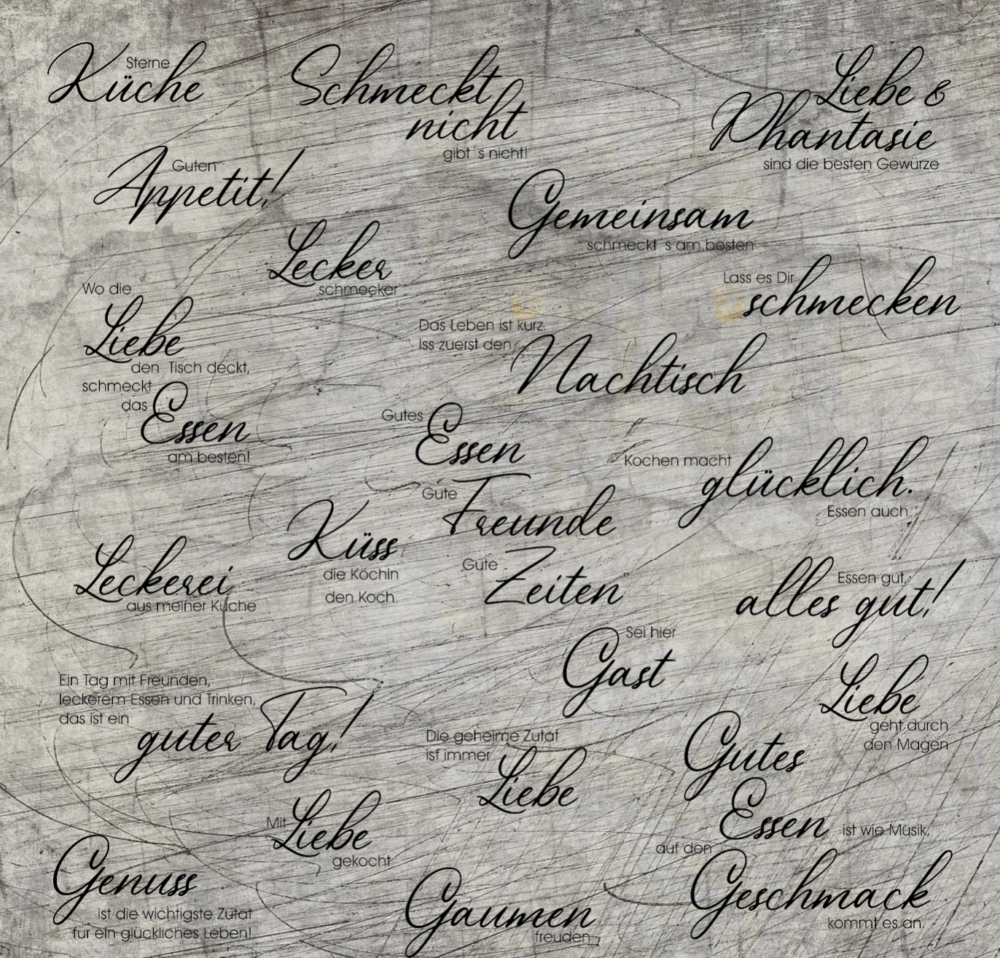 Sterne
Küche
Schmeckt
nicht
gibt´s nicht!
Liebe &
Phantasie
sind die besten Gewürze
Guten
Appetit!
Gemeinsam
schmeckt´s am besten
Lecker
schmecker
Lass es Dir
schmecken
Wo die
Liebe
den Tisch deckt,
schmeckt
das
Essen
am besten!
Das Leben ist kurz.
Iss zuerst den
Nachtisch
Gutes
Essen
Gute
Freunde
Gute
Zeiten
Kochen macht
glücklich.
Essen auch.
Küss
die Köchin
den Koch
Leckerei
aus meiner Küche
Essen gut,
alles gut!
Sei hier
Gast
Ein Tag mit Freunden,
leckerem Essen und Trinken,
das ist ein
guter Tag!
Liebe
geht durch
den Magen
Die geheime Zutat
ist immer
Liebe
Gutes
Essen ist wie Musik,
auf den
Geschmack
kommt es an.
Mit
Liebe
gekocht
Genuss
ist die wichtigste Zutat
für ein glückliches Leben!
Gaumen
freuden